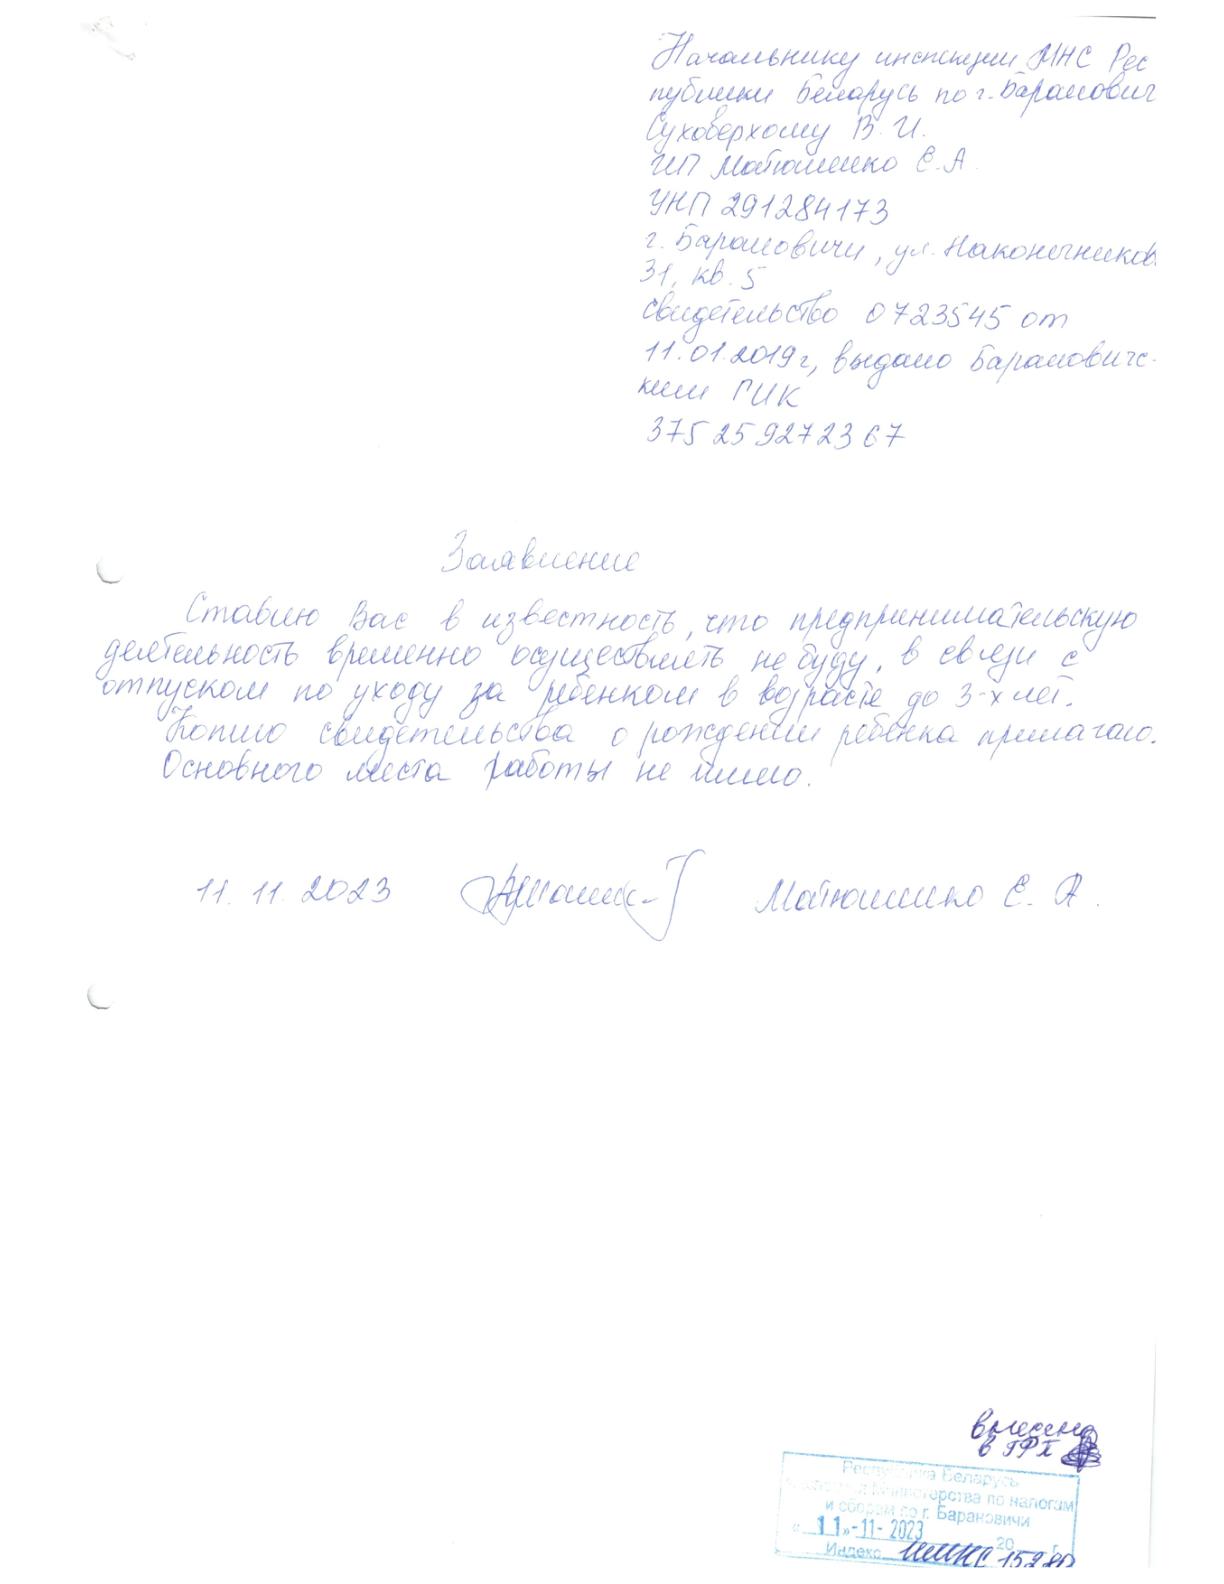 Начальнику инспекции МНС Рес
публики Беларусь по г. Баранович
Суховерхому В. И.
ИП Матюшенко Е. А.
УНП 291284173
г. Барановичи, ул. Наконечников
31, кв. 5
свидетельство 0723545 от
11.01.2019 г, выдано Баранович-
ким ГИК
375259272367
Заявление
Ставлю Вас в известность, что предпринимательскую
деятельность временно осуществлять не буду, в связи с
отпуском по уходу за ребенком в возрасте до 3-х лет.
Копию свидетельства о рождении ребенка прилагаю.
Основного места работы не имею.
11. 11. 2023 Матюшенко Е. А.
внесено
в ГРП
Республика Беларусь
Министерства по налогам
и сборам по г. Барановичи
« 11 » -11- 2023 20 г.
Индекс ИМНС 15280